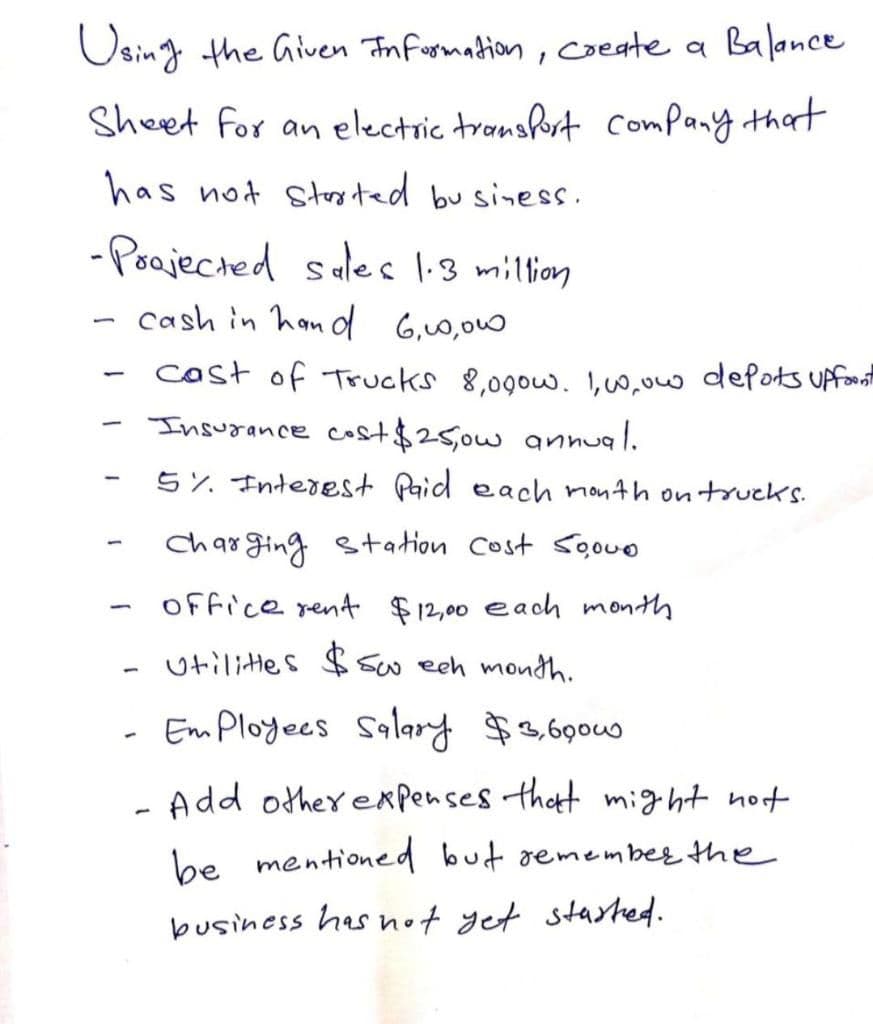 Using the Given Information, create a Balance
Sheet for an electric transport company that
has not started busines.
- Projected sales 1.3 million
- cash in hand 6,00,000
- Cost of Trucks 8,00,000. 1,00,000 depots upfront
- Insurance cost $25,000 annual.
- 5% Interest Paid each month on trucks.
- Charging station cost 50,000
- Office rent $12,00 each month
- Utilities $500 eeh month.
- Employees Salary $3,60,000
- Add other expenses that might not
be mentioned but remember the
business has not yet started.